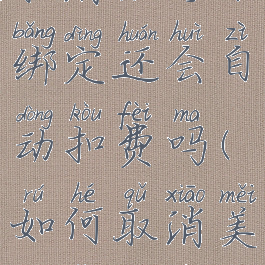 bǎng dìng huán huì zì
绑定还会自
dòng kòu fèi ma
动扣费吗(
rú hé qǔ xiāo měi
如何取消美